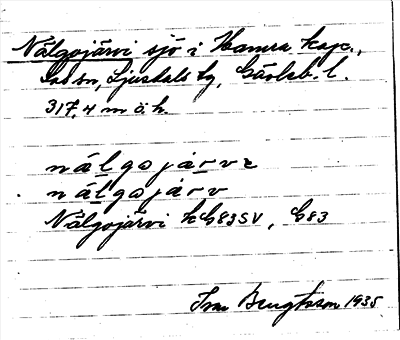 Nälgojärvi sjö i Hamra kap.,
Los sn, Ljusdals tg, Gävleb. l.
317,4 m ö.h.
nälgojärvɛ
nälgojärv
Nälgojärvi G83SV, G83
Bengtsson 1935